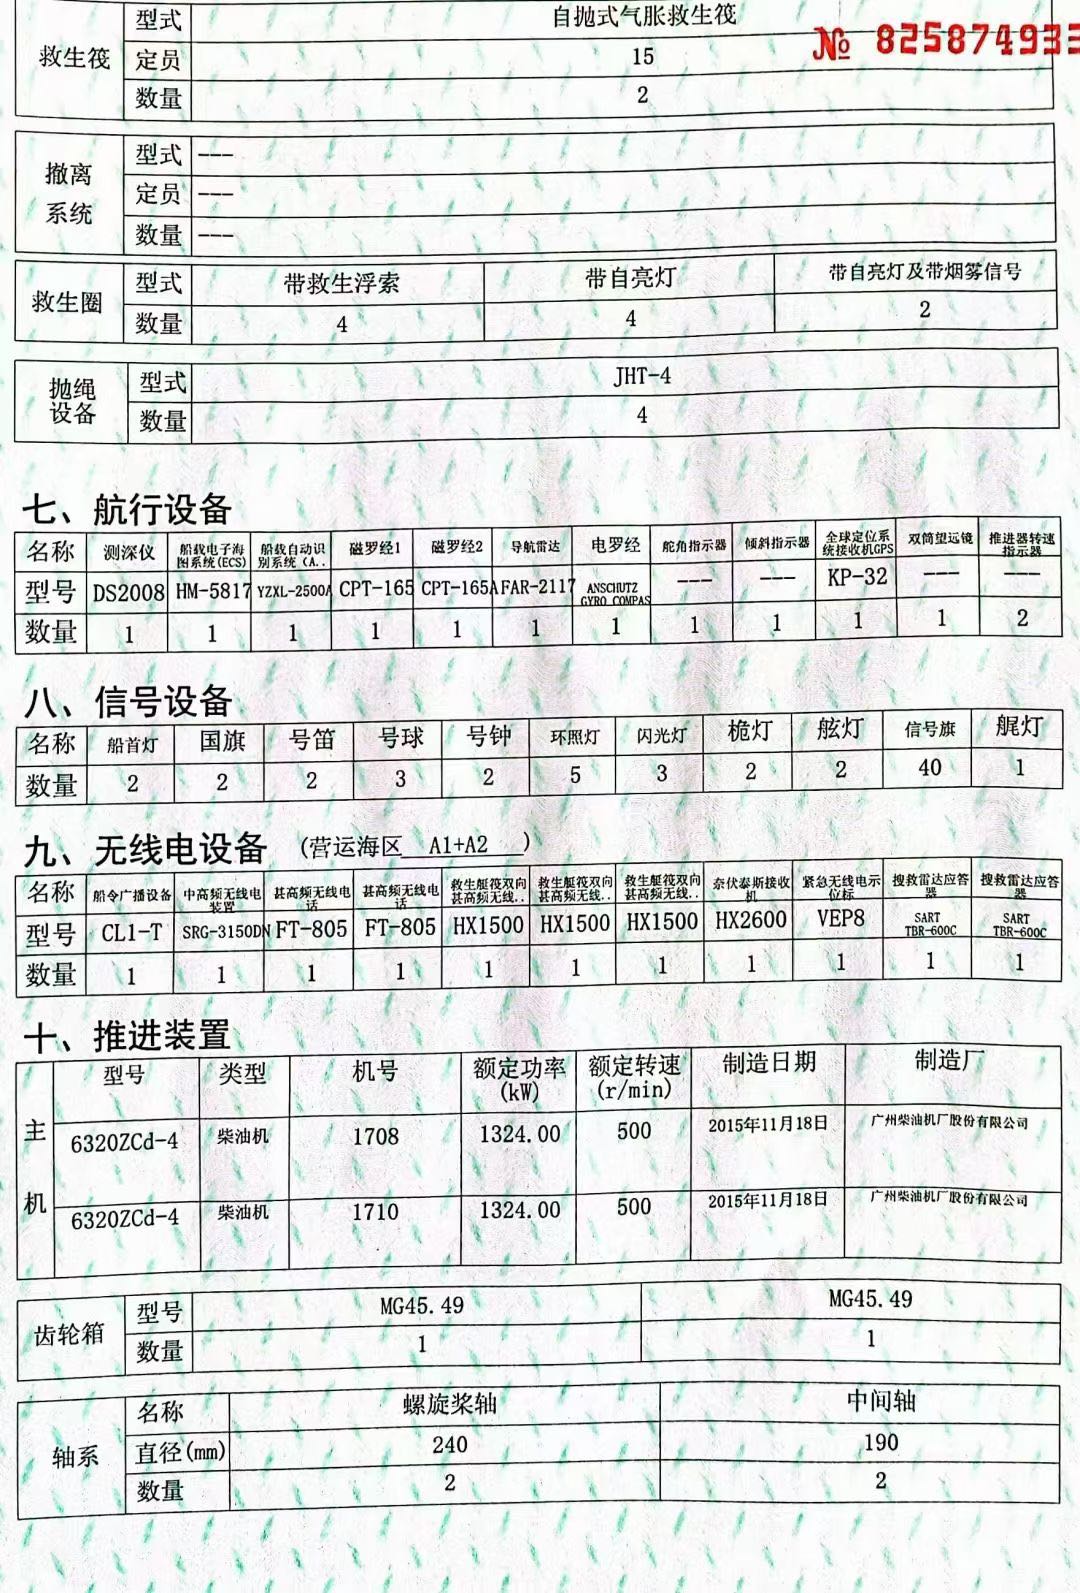 救生筏 型式 自抛式气胀救生筏
№ 82587493
定员 15
数量 2
撤离系统 型式 ---
定员 ---
数量 ---
救生圈 型式 带救生浮索 带自亮灯 带自亮灯及带烟雾信号
数量 4 4 2
抛绳设备 型式 JHT-4
数量 4
七、航行设备
名称 测深仪 船载电子海图系统(ECS) 船载自动识别系统（A.. 磁罗经1 磁罗经2 导航雷达 电罗经 舵角指示器 倾斜指示器 全球定位系统接收机GPS 双筒望远镜 推进器转速指示器
型号 DS2008 HM-5817 YZXL-2500A CPT-165 CPT-165A FAR-2117 ANSCHUTZ GYRO COMPAS --- --- KP-32 --- ---
数量 1 1 1 1 1 1 1 1 1 1 1 2
八、信号设备
名称 船首灯 国旗 号笛 号球 号钟 环照灯 闪光灯 桅灯 舷灯 信号旗 艉灯
数量 2 2 2 3 2 5 3 2 2 40 1
九、无线电设备 (营运海区 A1+A2 )
名称 船令广播设备 中高频无线电装置 甚高频无线电话 甚高频无线电话 救生艇筏双向甚高频无线.. 救生艇筏双向甚高频无线.. 救生艇筏双向甚高频无线.. 奈伏泰斯接收机 紧急无线电示位标 搜救雷达应答器 搜救雷达应答器
型号 CL1-T SRG-3150DN FT-805 FT-805 HX1500 HX1500 HX1500 HX2600 VEP8 SART TBR-600C SART TBR-600C
数量 1 1 1 1 1 1 1 1 1 1 1
十、推进装置
主机 型号 类型 机号 额定功率(kW) 额定转速(r/min) 制造日期 制造厂
6320ZCd-4 柴油机 1708 1324.00 500 2015年11月18日 广州柴油机厂股份有限公司
6320ZCd-4 柴油机 1710 1324.00 500 2015年11月18日 广州柴油机厂股份有限公司
齿轮箱 型号 MG45.49 MG45.49
数量 1 1
轴系 名称 螺旋桨轴 中间轴
直径(mm) 240 190
数量 2 2